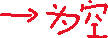 →为空